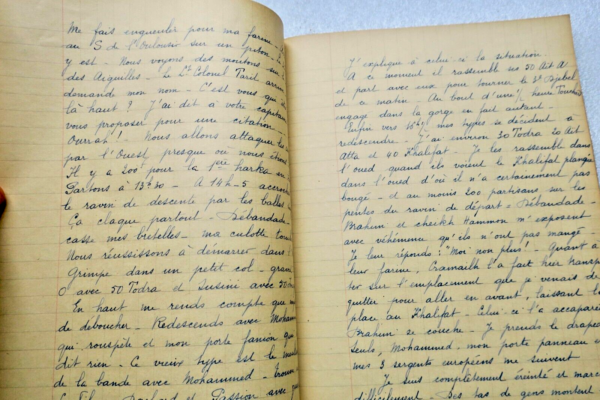 Me fais engueuler pour ma farine -
au S de l'Ouloussir sur un piton - le
y est - Nous voyons des moutons sur
des Aiguilles - le Lt Colonel Tarit arrive
demande mon nom - C'est vous qui
là haut ? J'ai dit à votre capitaine
vous proposer pour une citation -
Ourrah ! - Nous allons attaquer le
par l'Ouest, presque où nous étions
Il y a 200 pour la 1ère harka
Partons à 13h30 - A 14h-5 accro
le ravin de descente par les balles
Ça claque partout - Débandade -
casse mes bretelles - ma culotte tom
Nous réussissons à démarrer dans l
Grimpe dans un petit col -
O avec 50 Todra et Susini avec 50
En haut, me rends compte que
de déboucher - Redescends avec Moham
qui rouspète et mon porte fanion qui
dit rien - Ce vieux type est le
de la bande avec Mohammed -
et Passion avec
J'explique à celui-ci la situation.
A ce moment il rassemble ses 50 Ait A
et part avec eux pour tourner le Djebel
de ce matin - Au bout d'une ½ heure
engage dans la gorge en fait autant -
Enfin vers 16h mes types se décident à
redescendre - J'ai environ 30 Todra 20 Ait
Atta et 40 Khalifat - Je les rassemble dans
l'oued quand ils voient le Khalifat planqué
dans l'oued d'où il n'a certainement pas
bougé - et au moins 200 partisans sur les
pentes du ravin de départ - Débandade -
Brahim et cheikh Hammou m'exposent
avec véhémence qu'ils n'ont pas mangé -
Je leur réponds : "Moi non plus ! - Quant à
leur farine, l'a fait hier transpor
ter sur l'emplacement que je venais de
quitter pour aller en avant, laissant la
place au Khalifat - Celui-ci l'a accaparée
Brahim se couche - Je prends le drapeau
Seuls, Mohammed, mon porte panneau et
mes 3 sergents européens me suivent
Je suis complètement éreinté et marche
difficilement - Des tas de gens montent